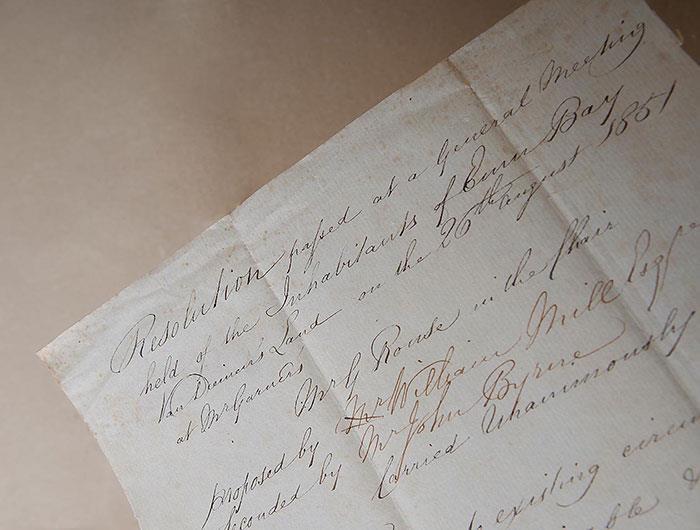 Resolution passed at a General Meeting
held of the Inhabitants of Emu Bay
Van Diemen's Land on the 26th August 1851
at Mr Garners
Mr G Rouse in the Chair
Proposed by Mr William Mill Esqr
Seconded by Mr John Byrne
Carried Unanimously
existing